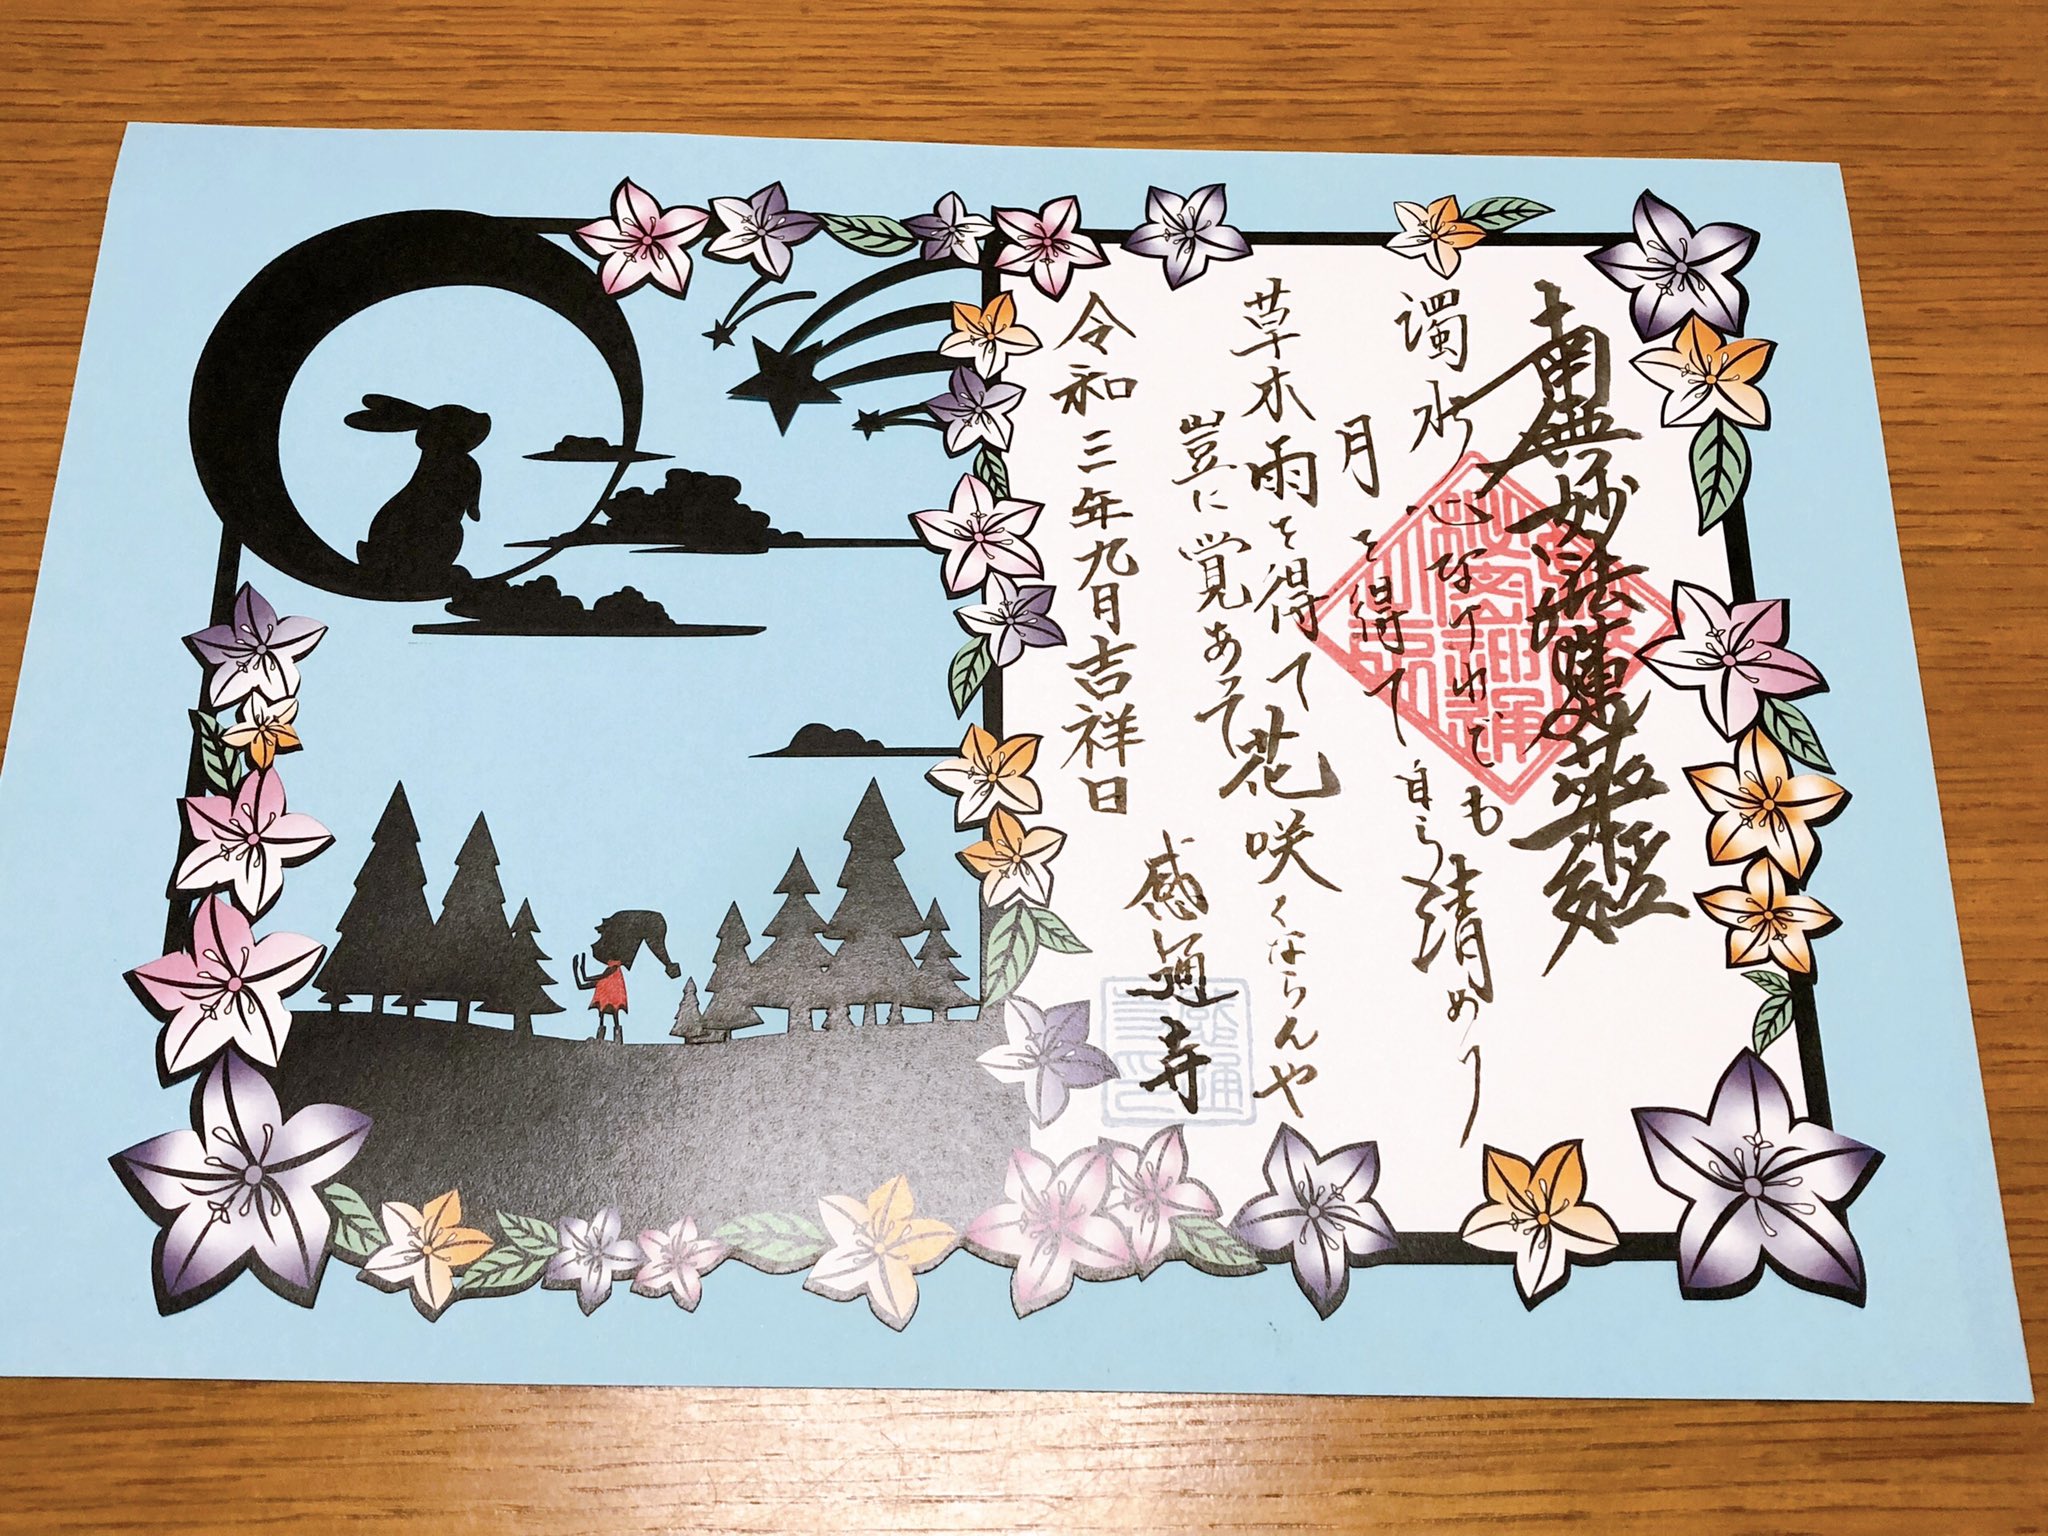 南無妙法蓮華経
濁水心なけれども
月を得て自ら清めり
草木雨を得て花咲くならんや
豈に覚あって
令和三年九月吉祥日
感通寺